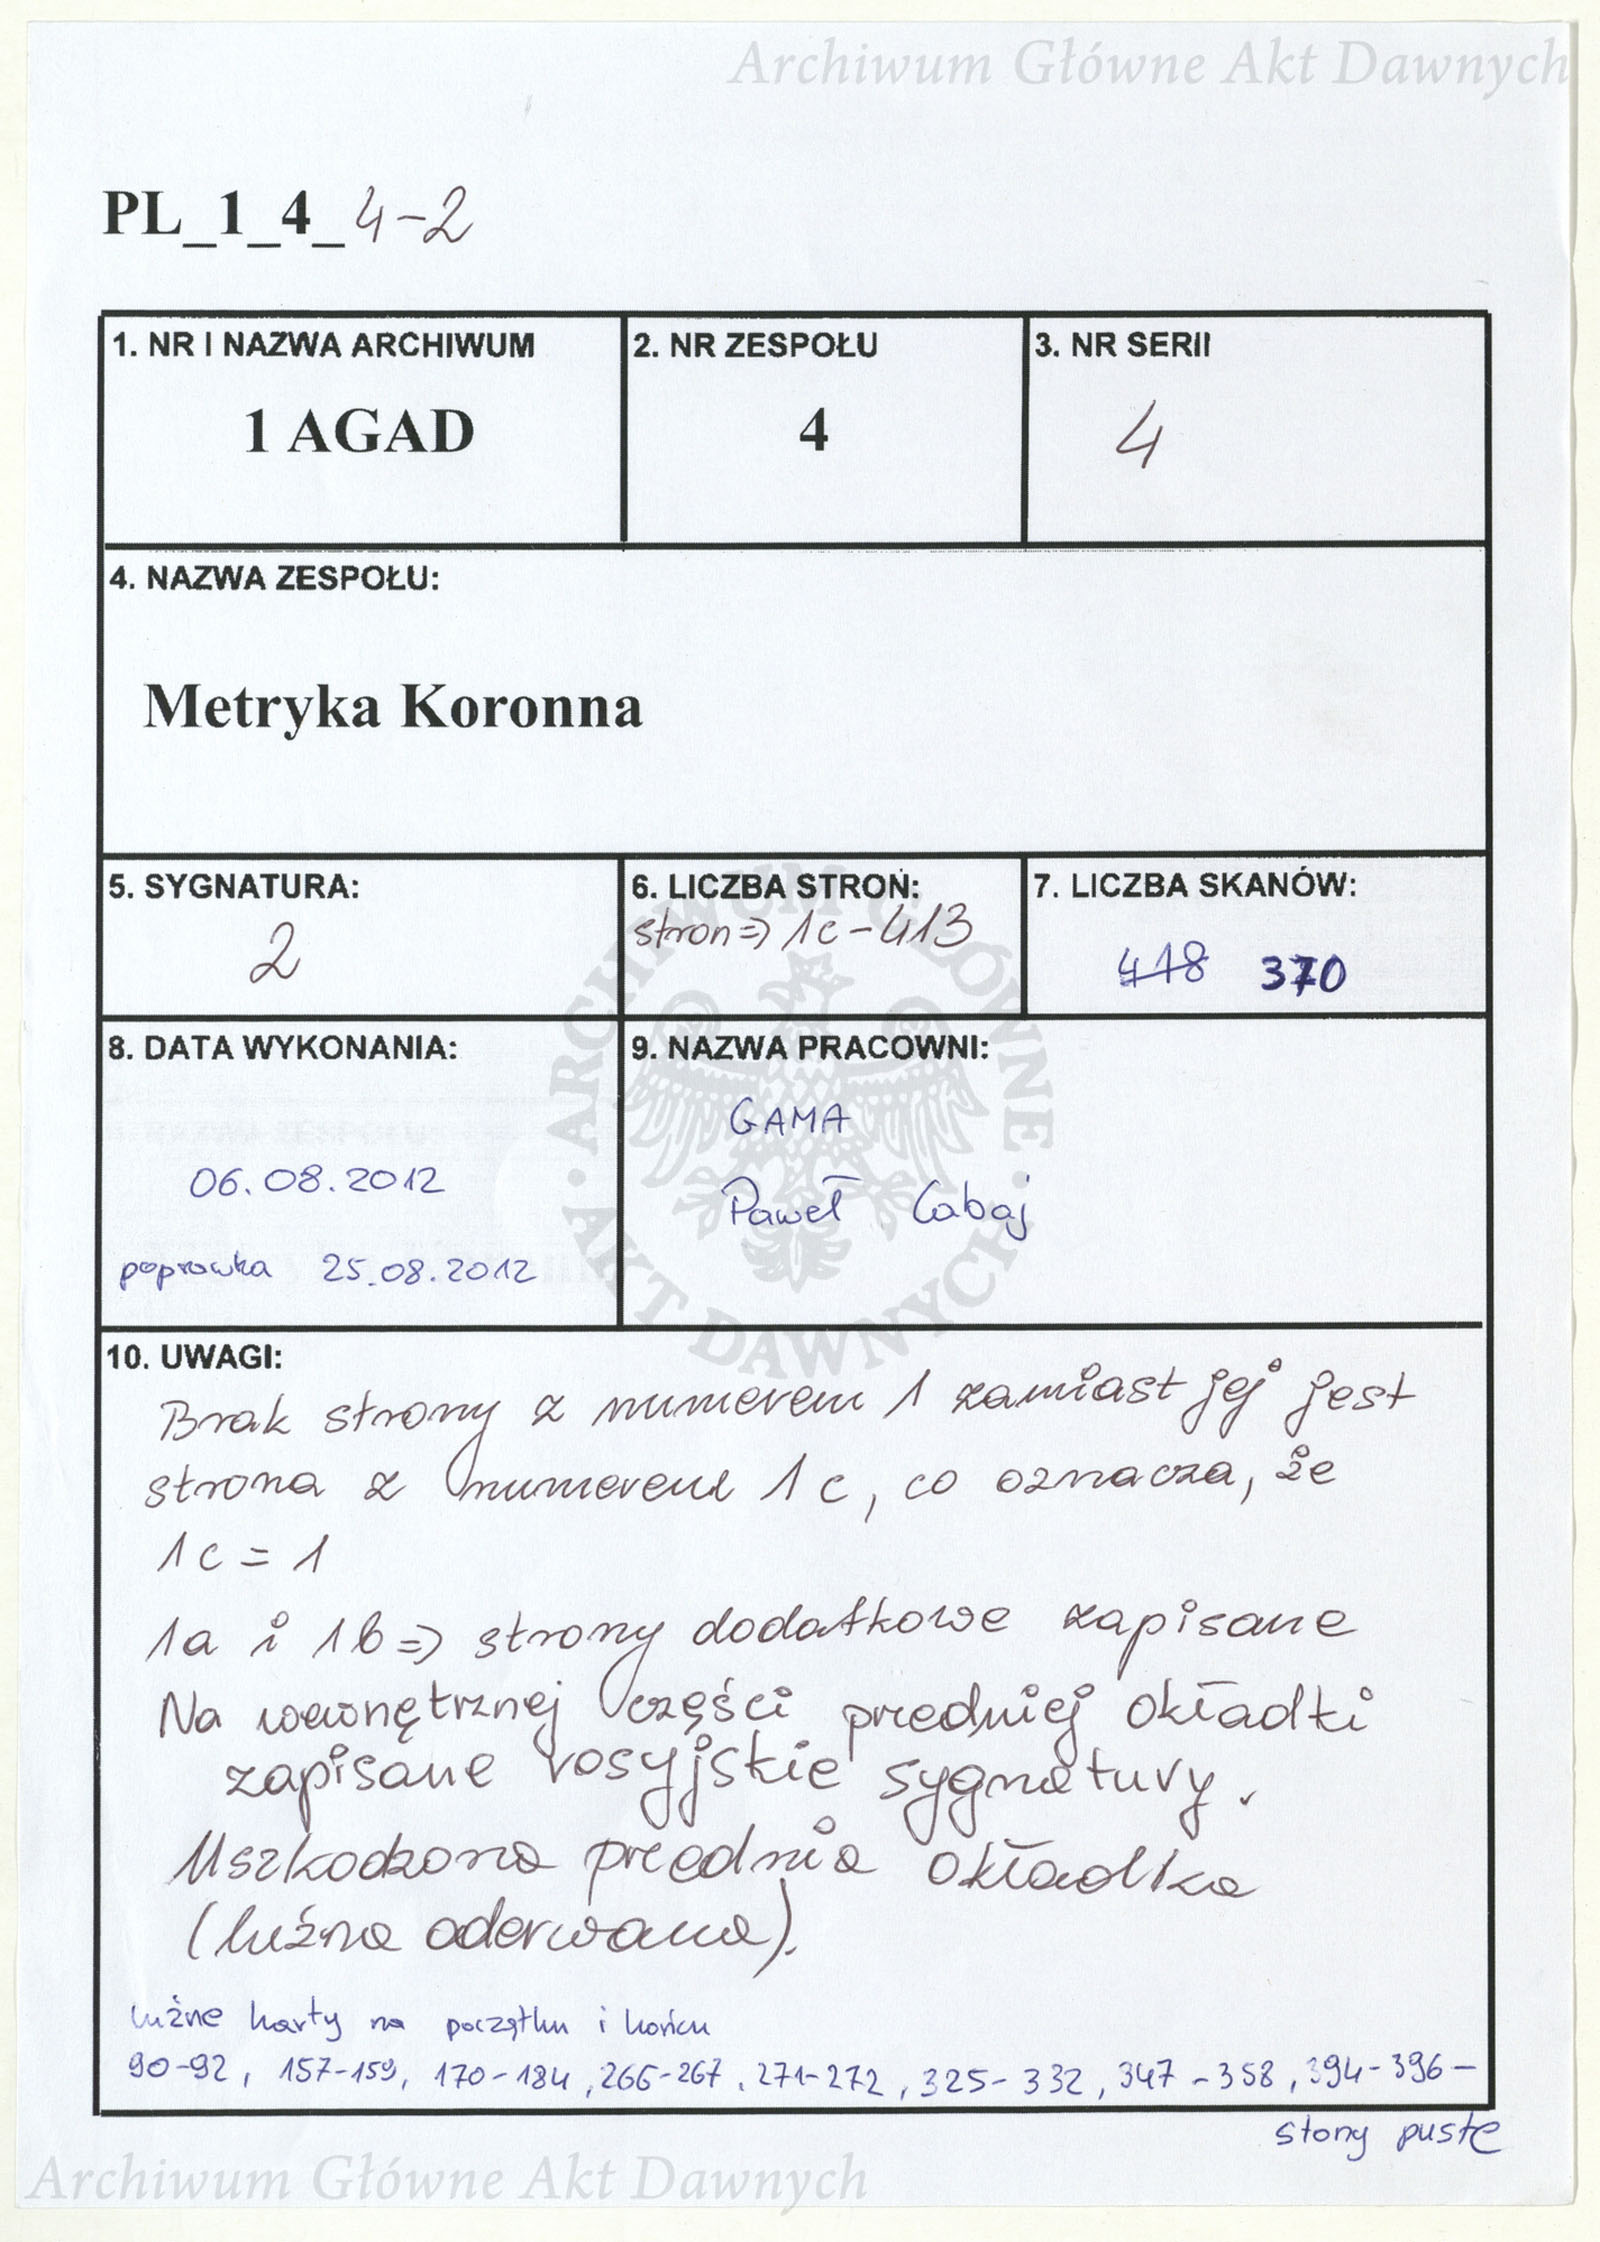 Archiwum Główne Akt Dawnych
PL_1_4_ 4-2
1. NR I NAZWA ARCHIWUM
1 AGAD
2. NR ZESPOŁU
4
3. NR SERII
4
4. NAZWA ZESPOŁU:
Metryka Koronna
5. SYGNATURA:
2
6. LICZBA STRON:
stron => 1c - 413
7. LICZBA SKANÓW:
418 370
8. DATA WYKONANIA:
06.08.2012
poprawka 25.08.2012
9. NAZWA PRACOWNI:
GAMA
Paweł Cabaj
ARCHIWUM GŁÓWNE · AKT DAWNYCH ·
10. UWAGI:
Brak strony z numerem 1 zamiast jej jest
strona z numerem 1c, co oznacza, że
1c = 1
1a i 1b => strony dodatkowe zapisane
Na wewnętrznej części predniej okładki
zapisane rosyjskie sygnatury.
Uszkodzona prednia okładka
(luźna oderwana).
luźne karty na początku i końcu
90-92, 157-159, 170-184, 266-267, 271-272, 325-332, 347-358, 394-396 -
stony puste
Archiwum Główne Akt Dawnych